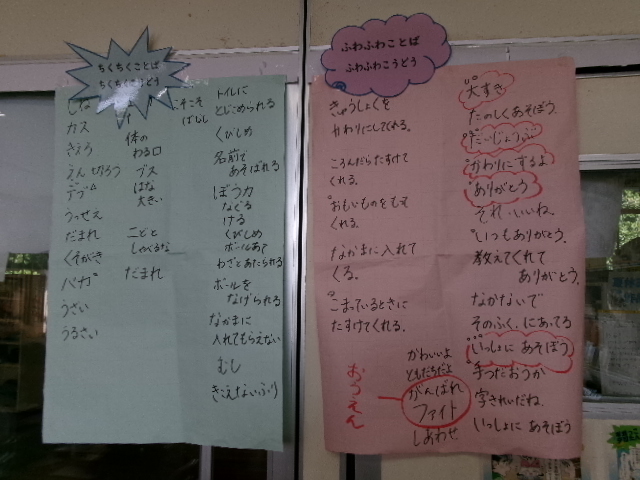 ちくちくことば
ちくちくこうどう
しね
カス
きえろ
えん切ろう
デブ
うっせえ
だまれ
くそがき
バカ
うざい
うるさい
体の
わる口
ブス
はな
大きい
しゃべるな
だまれ
こそこそ
ばなし
トイレに
とじこめられる
くびしめ
名前で
あそばれる
ぼう力
なぐる
ける
くびしめ
ボールあて
わざとあたられる
ボールを
なげられる
なかまに
入れてもらえない
むし
きこえないふり
ふわふわことば
ふわふわこうどう
きゅうしょくを
かわりにしてくれる。
ころんだらたすけて
くれる。
おもいものをもって
くれる。
なかまに入れて
くる。
こまっているときに
たすけてくれる。
おうえん
かわいいよ
ともだちだよ
がんばれ
ファイト
しあわせ
大すき
たのしくあそぼう。
だいじょうぶ
かわりにするよ
ありがとう
それいいね。
いつもありがとう。
教えてくれて
ありがとう。
なかないで
そのふく、にあってる
いっしょにあそぼう
手つだおうか
字きれいだね。
いっしょにあそぼう